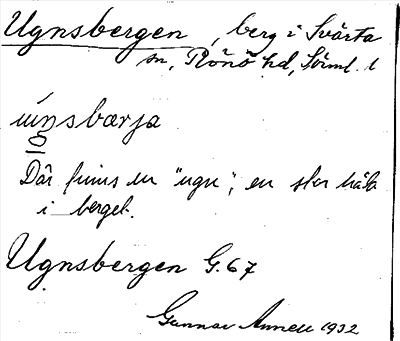 Ugnsbergen, berg i Svärta
sn, Rönö hd, Sörml. l
ùŋnsbærja
Där finns en "ugn", en stor håla
i berget.
Ugnsbergen G. 67
Gunnar Annell 1932